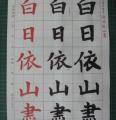 白白白
日日日
依依依
山山山
盡盡盡